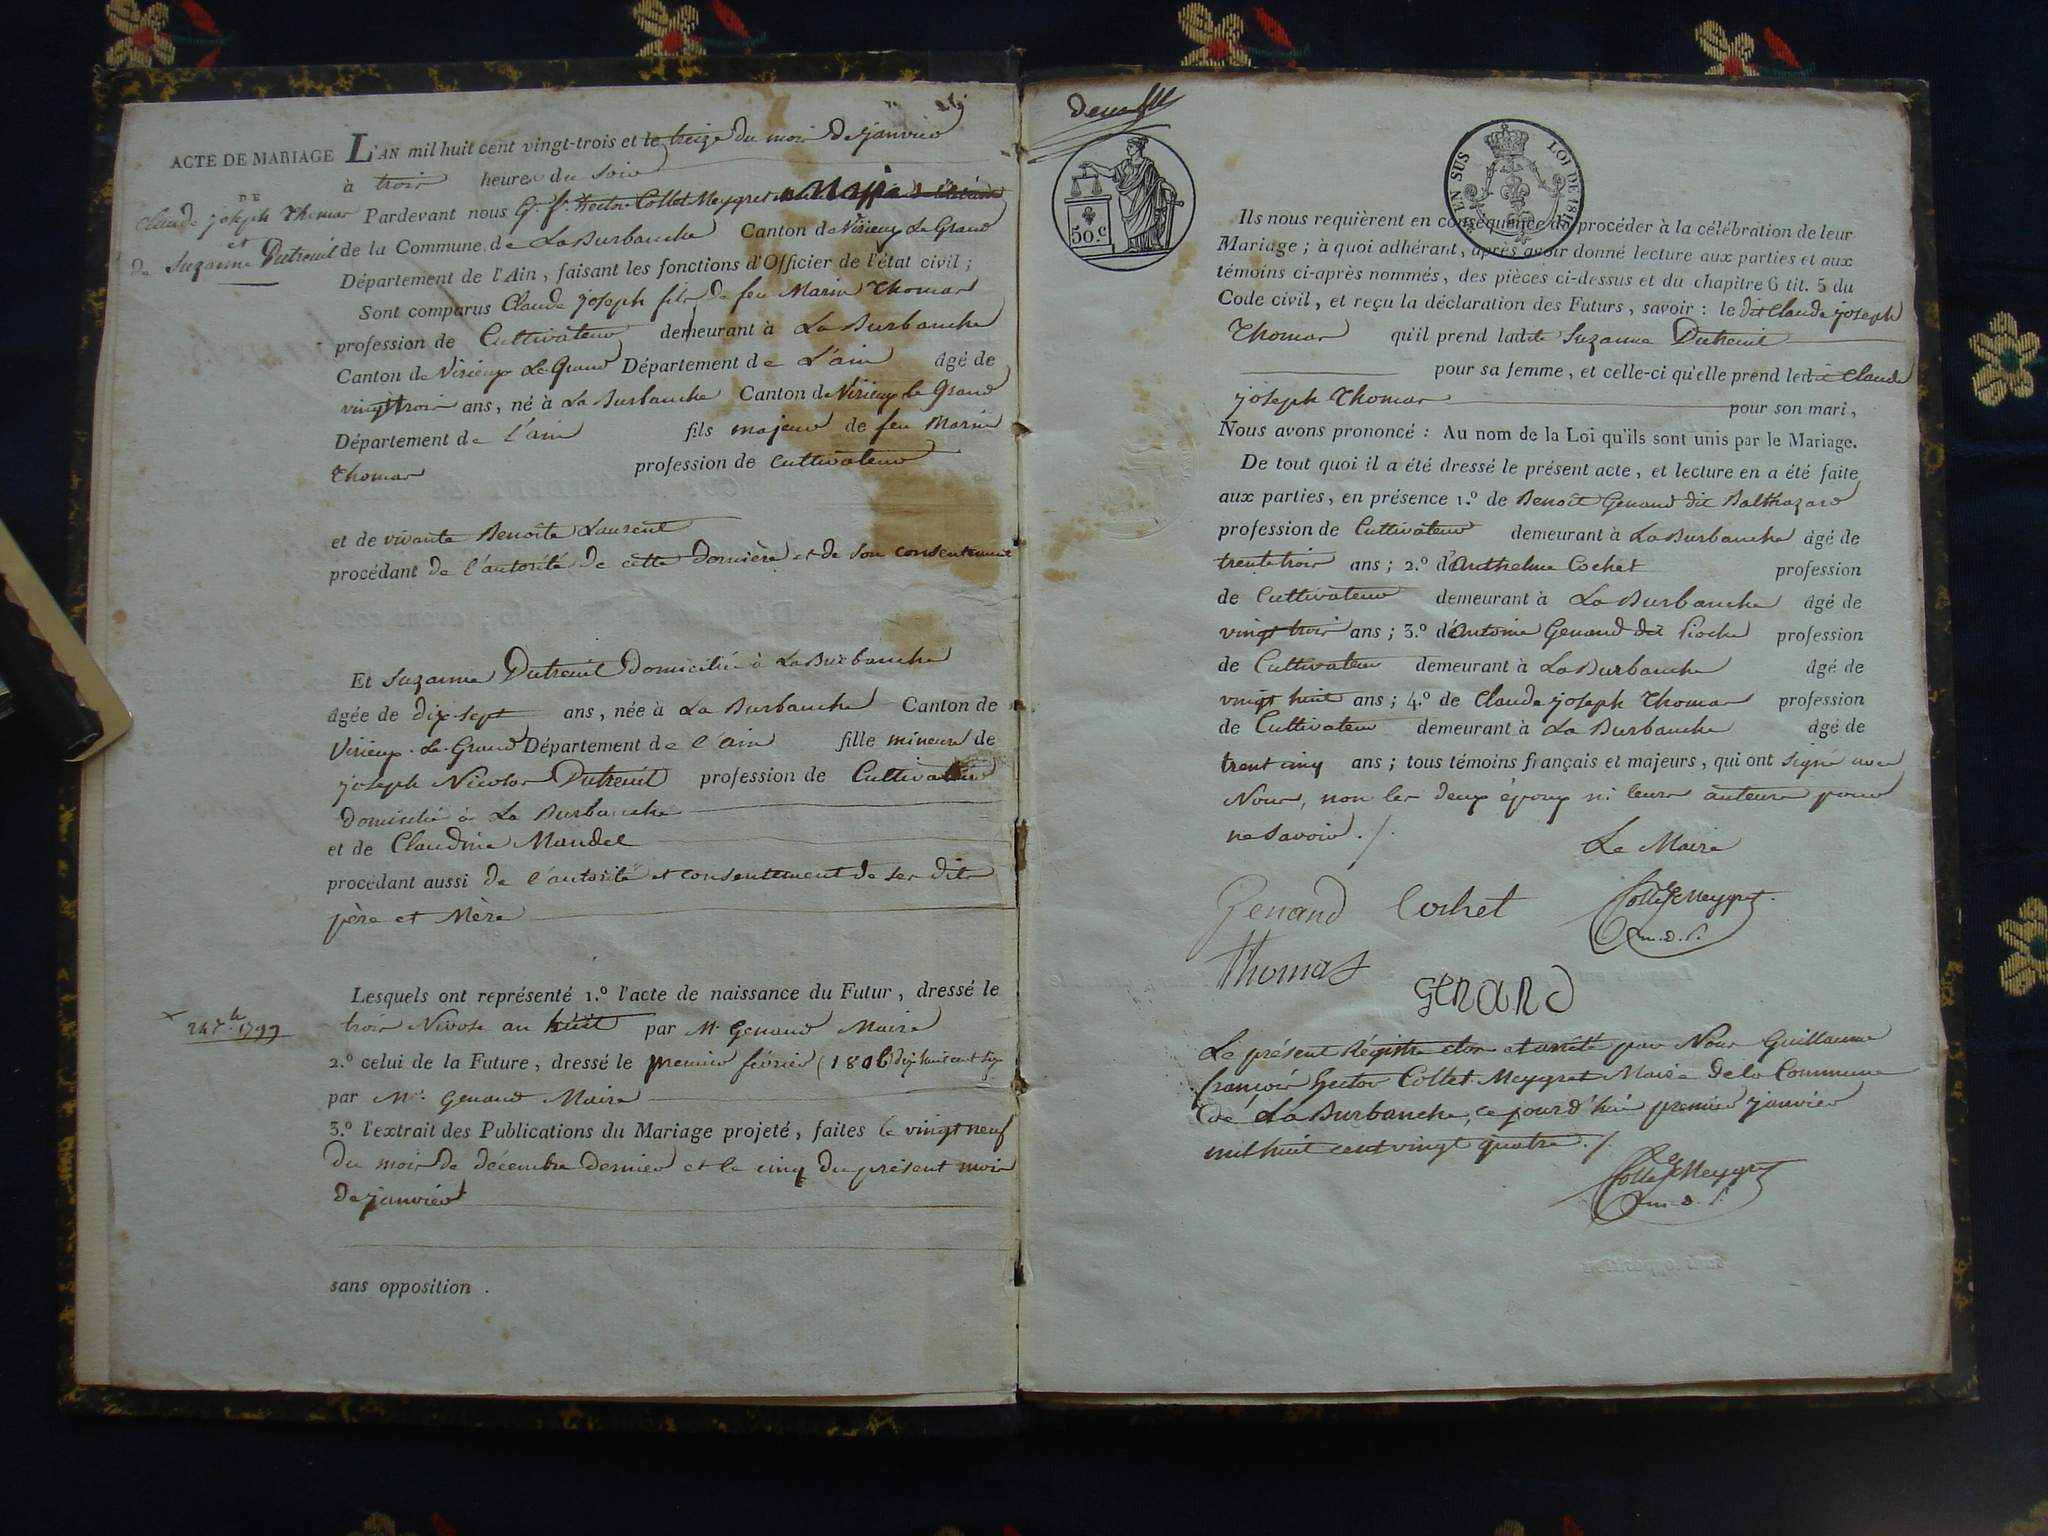 ACTE DE MARIAGE
DE
Claude joseph Thomas
et
de Suzanne Dutreuil
L'AN mil huit cent vingt-trois et le treize du mois de janvier
à trois heures du soir
Pardevant nous G. f. Hector Collet Meygret Maire
de la Commune de La Burbanche Canton de Virieux Le Grand
Département de l'Ain, faisant les fonctions d'Officier de l'état civil;
Sont comparus Claude joseph fils de feu Marin Thomas
profession de Cultivateur demeurant à La Burbanche
Canton de Virieux Le Grand Département de L'ain âgé de
vingt trois ans, né à La Burbanche Canton de Virieux le Grand
Département de l'ain fils majeur de feu Marin
Thomas profession de Cultivateur
et de vivante Benoîte Laurent
procédant de l'autorité de cette dernière et de son consentement
Et Suzanne Dutreuil domiciliée à La Burbanche
âgée de dix sept ans, née à La Burbanche Canton de
Virieux-Le-Grand Département de l'ain fille mineure de
joseph Nicolas Dutreuil profession de Cultivateur
domicilié à La Burbanche
et de Claudine Mandel
procédant aussi de l'autorité et consentement de ses dits
père et Mère
Lesquels ont représenté 1.º l'acte de naissance du Futur, dressé le
trois Nivose an huit par Mr. Genand Maire
x 24 Xbre. 1799
2.º celui de la Future, dressé le premier février (1806 dix huit cent six
par Mr. Genand Maire
3.º l'extrait des Publications du Mariage projeté, faites le vingt neuf
du mois de décembre dernier et le cinq du présent mois
de janvier
sans opposition.
50.c
EN SUS
LOI DE 181
Ils nous requièrent en conséquence de procéder à la célébration de leur
Mariage; à quoi adhérant, après avoir donné lecture aux parties et aux
témoins ci-après nommés, des pièces ci-dessus et du chapitre 6 tit. 5 du
Code civil, et reçu la déclaration des Futurs, savoir: le dit Claude joseph
Thomas qu'il prend ladite Suzanne Dutreuil
pour sa femme, et celle-ci qu'elle prend ledit Claude
joseph Thomas pour son mari,
Nous avons prononcé: Au nom de la Loi qu'ils sont unis par le Mariage.
De tout quoi il a été dressé le présent acte, et lecture en a été faite
aux parties, en présence 1.º de Benoît Genand dit Balthazard
profession de Cultivateur demeurant à La Burbanche âgé de
trente trois ans; 2.º d'Anthelme Cochet profession
de Cultivateur demeurant à La Burbanche âgé de
vingt trois ans; 3.º d'Antoine Genand dit Pioche profession
de Cultivateur demeurant à La Burbanche âgé de
vingt huit ans; 4.º de Claude joseph Thomas profession
de Cultivateur demeurant à La Burbanche âgé de
trent cinq ans; tous témoins français et majeurs, qui ont signé avec
Nous, non les deux époux ni leurs auteurs pour
ne savoir ./.
Le Maire
Genand Cochet Collet Meygret
Thomas
m.d.s.
Genand
Le présent Régistre clos et arrêté par Nous Guillaume
françois Hector Collet Meygret Maire de la Commune
de La Burbanche, ce jourd'hui premier janvier
mil huit cent vingt quatre ./.
Collet Meygret
m.d.s.